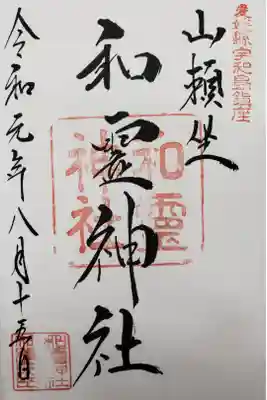 愛媛県宇和島鎮座
山頼坐
和霊神社
和霊神社
令和元年八月十五日